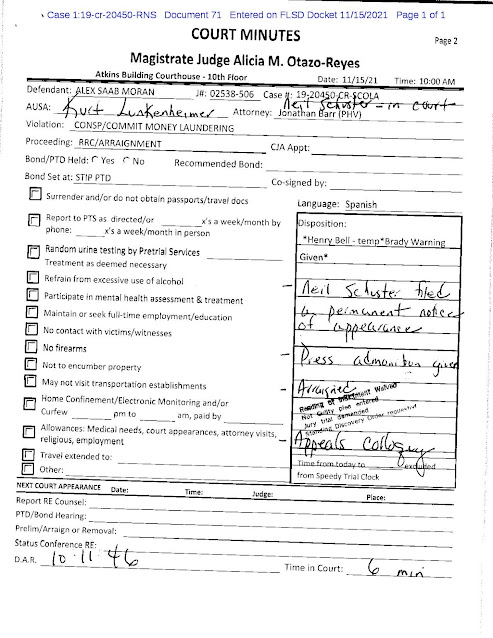 Case 1:19-cr-20450-RNS Document 71 Entered on FLSD Docket 11/15/2021 Page 1 of 1
COURT MINUTES
Page 2
Magistrate Judge Alicia M. Otazo-Reyes
Atkins Building Courthouse - 10th Floor Date: 11/15/21 Time: 10:00 AM
Defendant: ALEX SAAB MORAN J#: 02538-506 Case #: 19-20450-CR-SCOLA
Neil Schuster - in court
AUSA: Kurt Lunkenheimer Attorney: Jonathan Barr (PHV)
Violation: CONSP/COMMIT MONEY LAUNDERING
Proceeding: RRC/ARRAIGNMENT CJA Appt:
Bond/PTD Held: Yes No Recommended Bond:
Bond Set at: STIP PTD Co-signed by:
Surrender and/or do not obtain passports/travel docs
Report to PTS as directed/or x's a week/month by
phone: x's a week/month in person
Random urine testing by Pretrial Services
Treatment as deemed necessary
Refrain from excessive use of alcohol
Participate in mental health assessment & treatment
Maintain or seek full-time employment/education
No contact with victims/witnesses
No firearms
Not to encumber property
May not visit transportation establishments
Home Confinement/Electronic Monitoring and/or
Curfew pm to am, paid by
Allowances: Medical needs, court appearances, attorney visits,
religious, employment
Travel extended to:
Other:
Language: Spanish
Disposition:
*Henry Bell - temp*Brady Warning
Given*
Neil Schuster filed
a permanent notice
of appearance
Press admonition given
Arraigned
Reading of Indictment Waived
Not Guilty plea entered
Jury trial demanded
Standing Discovery Order requested
Appeals colloquy
Time from today to excluded
from Speedy Trial Clock
NEXT COURT APPEARANCE Date: Time: Judge: Place:
Report RE Counsel:
PTD/Bond Hearing:
Prelim/Arraign or Removal:
Status Conference RE:
D.A.R. 10:11:46 Time in Court: 6 min